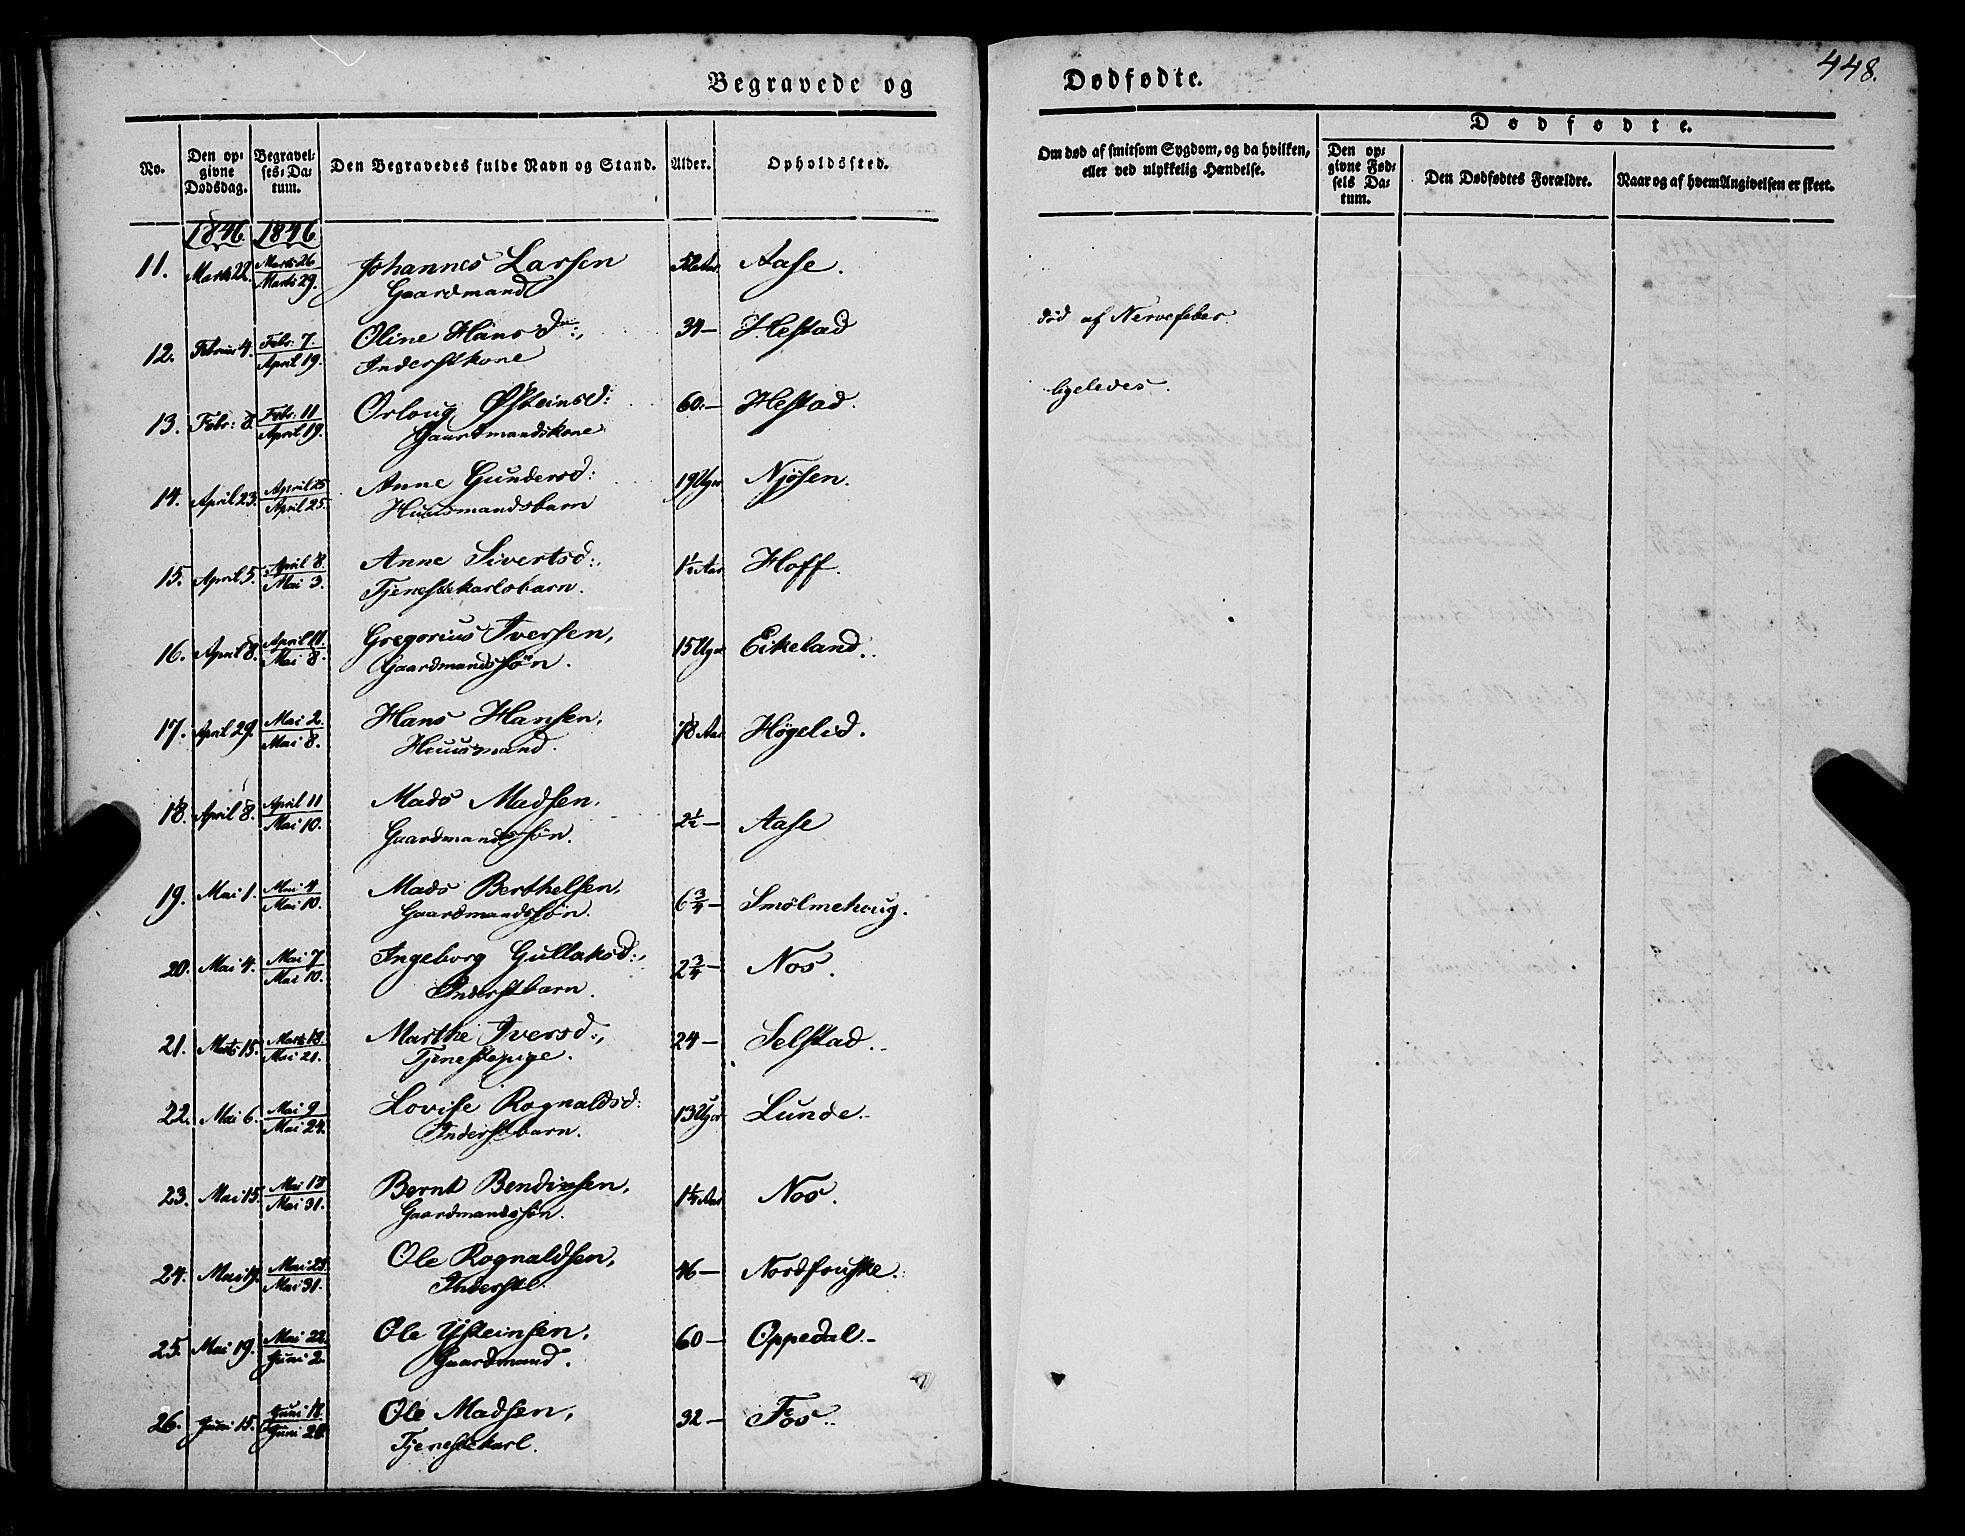 448.
Begravede og Dødfødte.
No. Den opgivne Dødsdag. Begravelses-Datum. Den Begravedes fulde Navn og Stand. Alder. Opholdssted. Om død af smitsom Sygdom, og da hvilken, eller ved ulykkelig Hændelse. Dødfødte. Den opgivne Fødsels Datum. Den Dødfødtes Forældre. Naar og af hvem Angivelsen er skeet.
1846. 1846.
11. Marts 22. Marts 26 Marts 29. Johannes Larsen 52 Aar. Aase.
Gaardmand
12. Februar 4. Febr. 7. April 19. Oline Hansd:, 34— Hestad død af Nervefeber.
Inderstkone
13. Febr: 8. Febr: 11 April 19. Orloug Østeinsd: 60.— Hestad. ligeledes.
Gaardmandskone
14. April 23. April 25 April 25. Anne Gundersd: 19 Uger Njøsen.
Huusmandsbarn
15. April 5. April 8. Mai 3. Anne Sivertsd:, 1½ Aar Hoff.
Tjenestekarlsbarn.
16. April 8. April 11. Mai 8. Gregorius Iversen, 15 Uger Eikeland.
Gaardmandssøn.
17. April 29. Mai 2. Mai 8. Hans Hansen, 78 Aar Høgelid.
Huusmand.
18. April 8. April 11 Mai 10. Mads Madsen, 2½— Aase
Gaardmandssøn.
19. Mai 1. Mai 4 Mai 10. Mads Berthelsen, 6¾— Smølmehoug.
Gaardmandssøn.
20. Mai 4. Mai 7 Mai 10. Ingeborg Gullaksd:, 2¾— Nos.
Inderstbarn.
21. Marts 15. Marts 18 Mai 21. Marthe Iversd:, 24— Selstad.
Tjenestepige.
22. Mai 6. Mai 9 Mai 24. Lovise Rognaldsd: 13 Uger Lunde.
Inderstbarn.
23. Mai 15. Mai 18 Mai 31. Bernt Bendixsen, 1¼ Aar Nos.
Gaardmandssøn.
24. Mai 19. Mai 23. Mai 31. Ole Rognaldsen, 46— Nordfouske.
Inderst.
25. Mai 19. Mai 22. Juni 2. Ole Ysteinsen, 60— Oppedal.
Gaardmand.
26. Juni 15. Juni 18. Juni 20. Ole Madsen, 32— Fos.
Tjenestekarl.